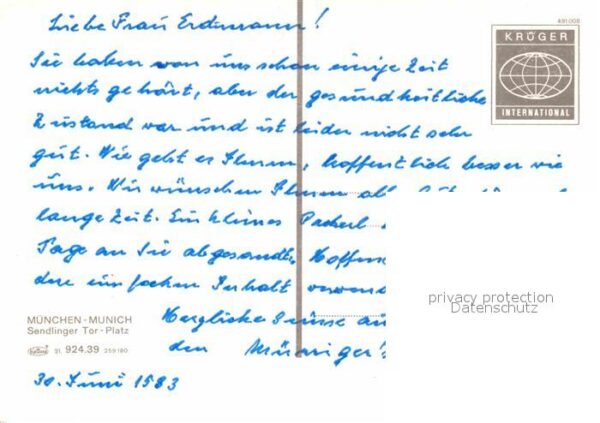 Liebe Frau Erdmann!
Sie haben von uns schon einige Zeit
nichts gehört, aber der gesundheitliche
Zustand war und ist leider nicht sehr
gut. Wie geht es Ihnen, hoffentlich besser wie
uns. Wir wünschen Ihnen
lange Zeit. Ein kleines Packerl
Tage an Sie abgesandt. Hoffen
den einfachen Inhalt
Herzliche Grüsse
den
30. Juni 1983
491008
KRÜGER
INTERNATIONAL
MÜNCHEN - MUNICH
Sendlinger Tor - Platz
51 924.39 259180
privacy protection
Datenschutz